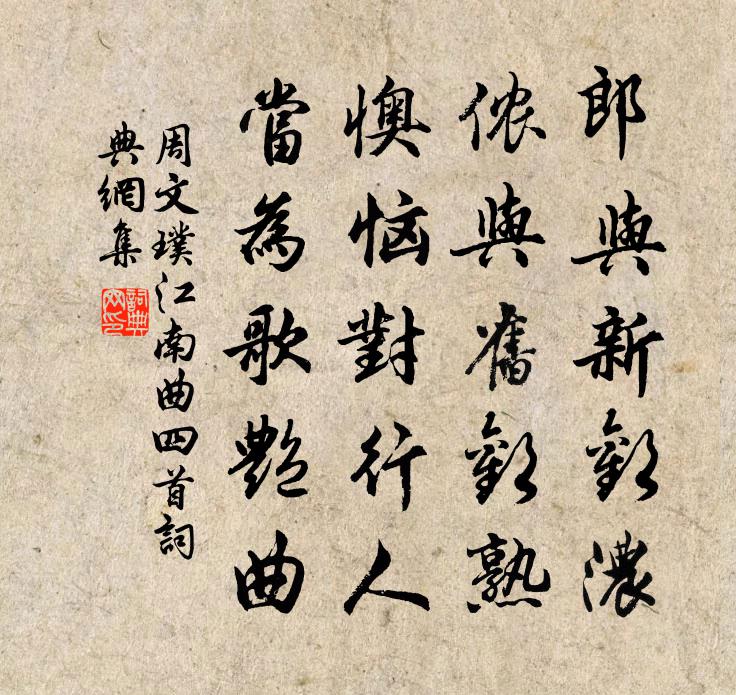 郎與新歡濃
儂與舊歡熟
懊惱對行人
當為歌艷曲
周文璞江南曲四首詞
典網集
詞典
網印